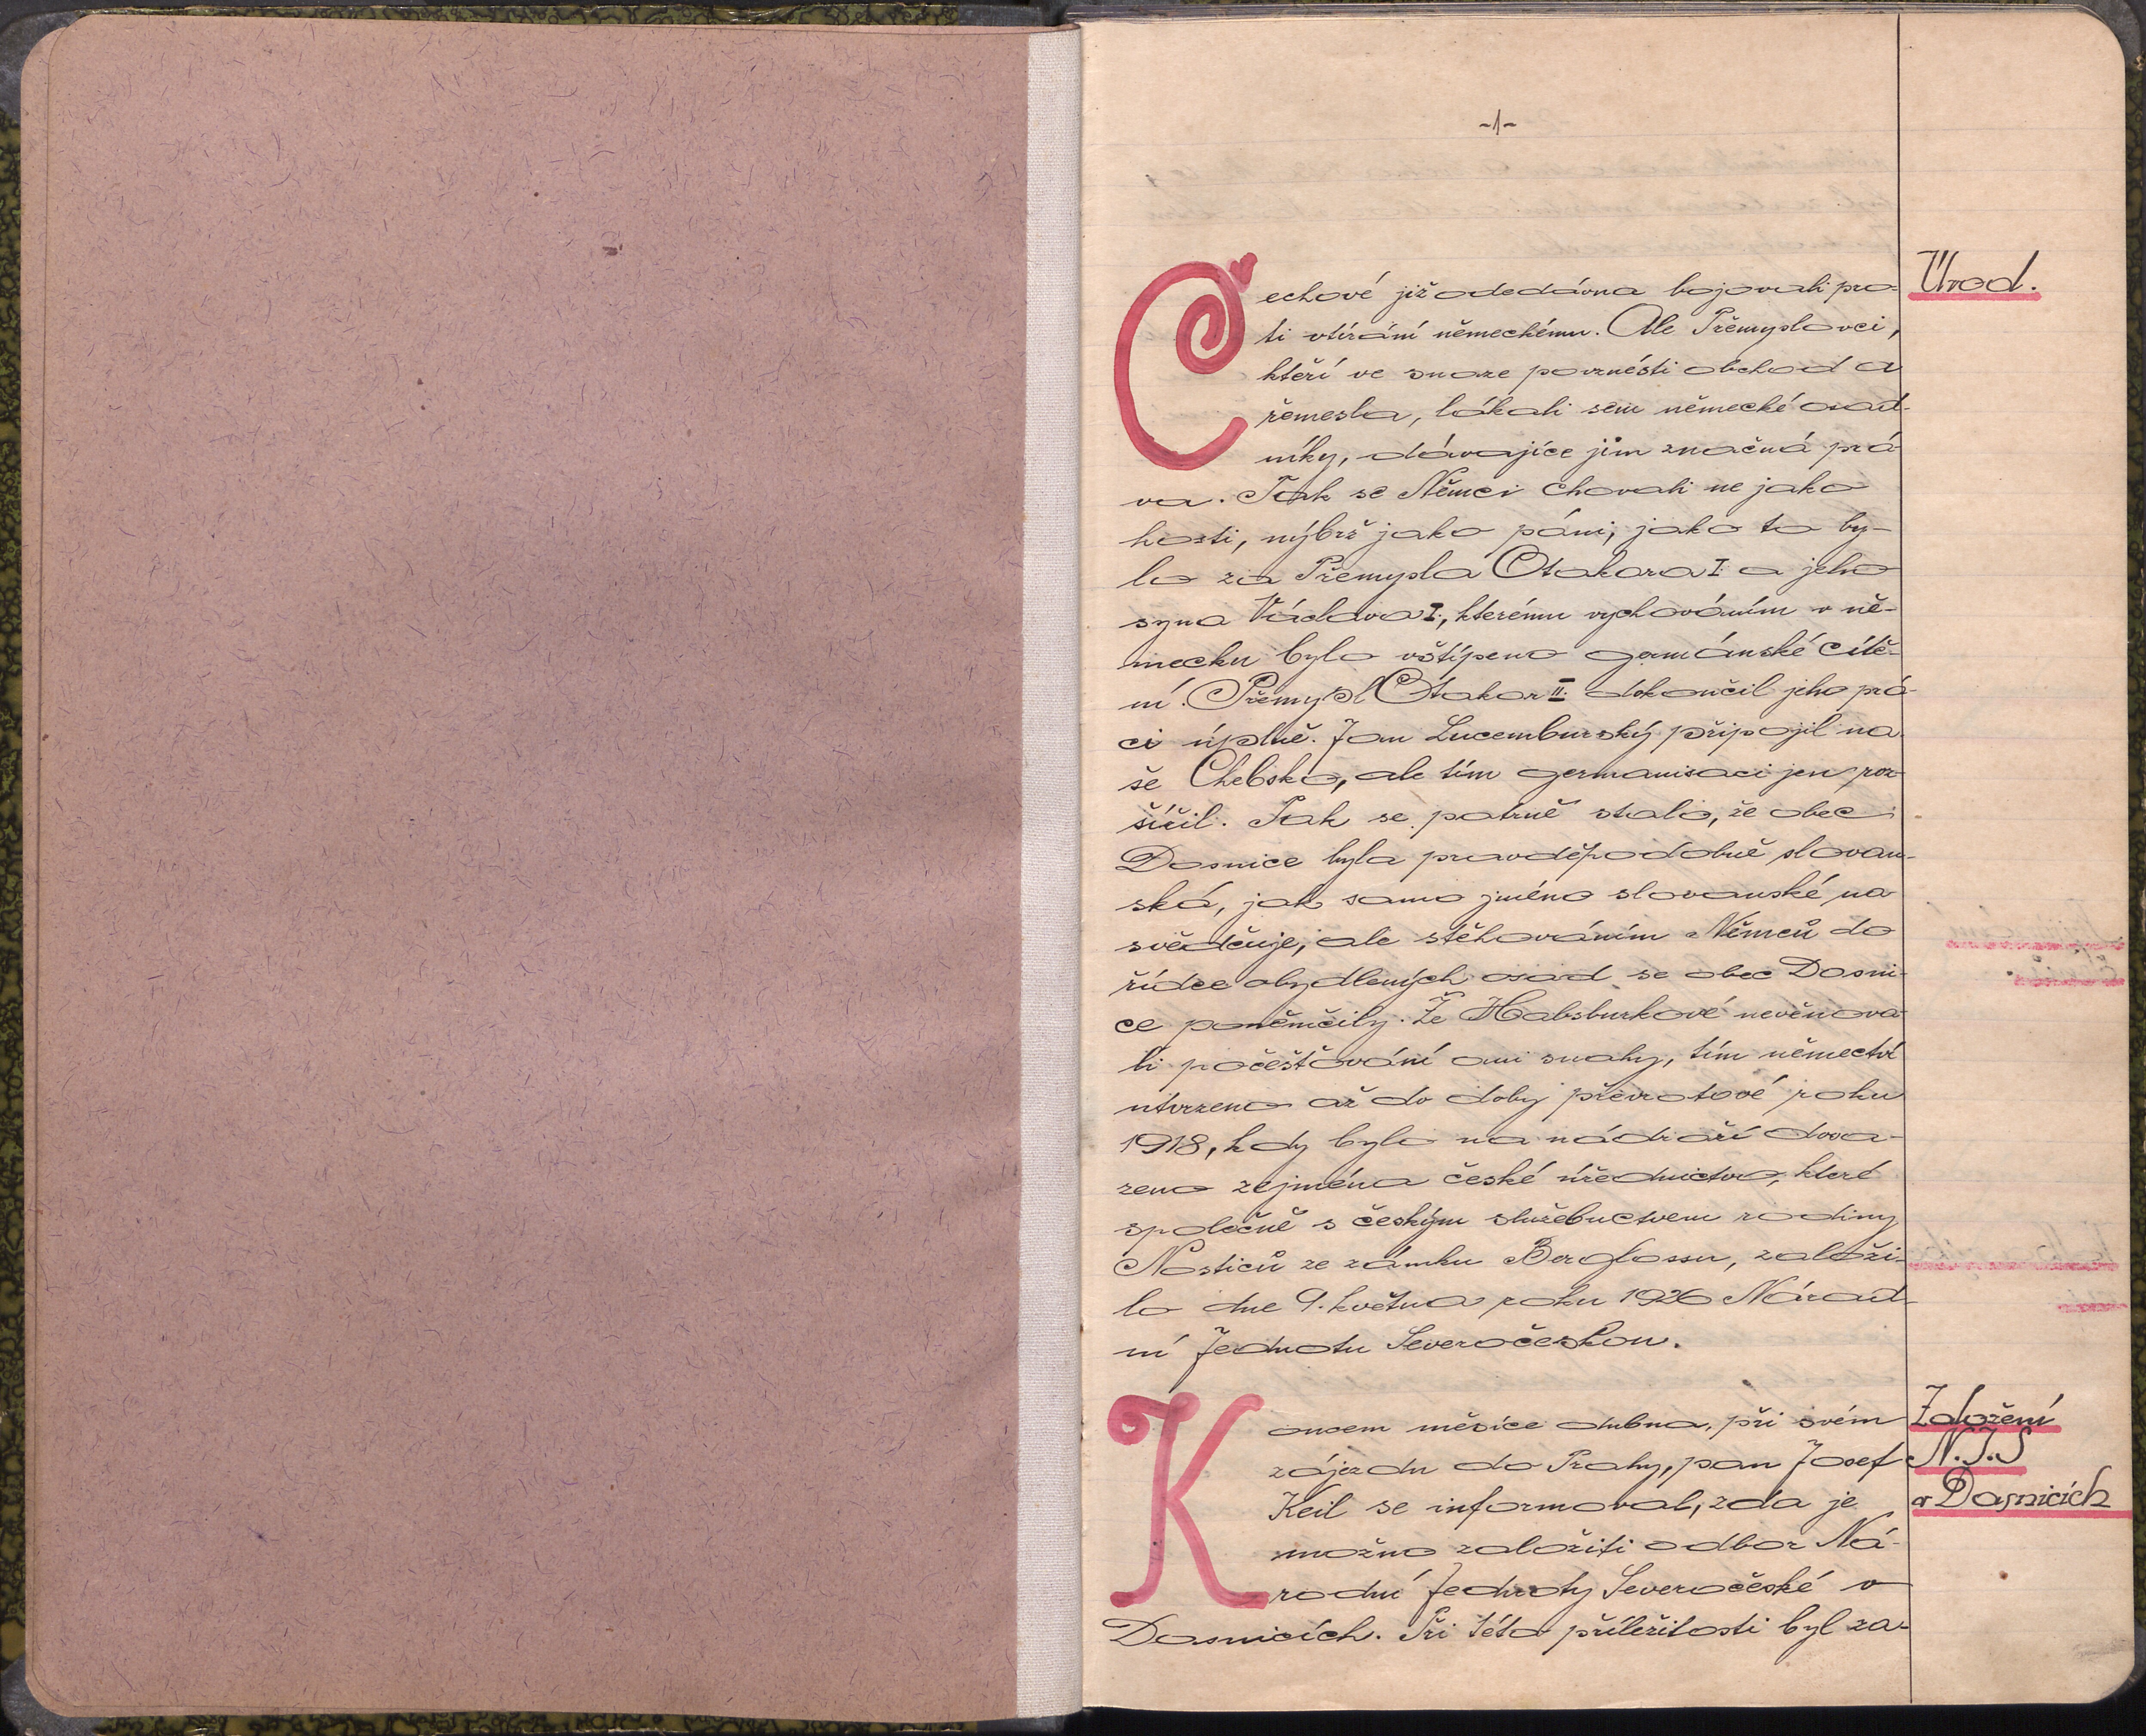 -1-
Čechové již odedávna bojovali pro-
Úvod.
ti vtírání německému. Ale Přemyslovci,
kteří ve snaze povznésti obchod a
řemesla, lákali sem německé osad-
níky, dávajíce jim značná prá-
va. Tak se Němci chovali ne jako
hosti, nýbrž jako páni, jako to by-
lo za Přemysla Otakara I. a jeho
syna Václava I., kterému vychováním v ně-
mecku bylo vštípeno germánské cítě-
ní. Přemysl Otakar II. dokončil jeho prá-
ci úplně. Jan Lucemburský připojil na-
še Chebsko, ale tím germanisaci jen roz-
šířil. Tak se patrně stalo, že obec
Dasnice byla pravděpodobně slovan-
ská, jak samo jméno slovanské na
svědčuje, ale stěhováním Němců do
řídce obydlených osad se obec Dasni-
ce poněmčily. Že Habsburkové nevěnova-
li počešťování ani snahy, tím němectví
utvrzeno až do doby převratové roku
1918, kdy bylo na nádraží dosa-
zeno zejména české úřednictvo, které
společně s českým služebnictvem rodiny
Nosticů ze zámku Berglossu, založi-
lo dne 9. května roku 1926 Národ-
ní Jednotu Severočeskou.
Koncem měsíce dubna, při svém
Založení
zájezdu do Prahy, pan Josef
N.J.S
Keil se informoval, zda je
v Dasnicích
možno založiti odbor Ná-
rodní Jednoty Severočeské v
Dasnicích. Při této příležitosti byl za-